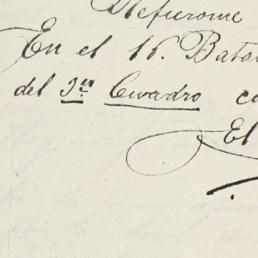 En el 16. Bata
del 3er Cuadro co
El